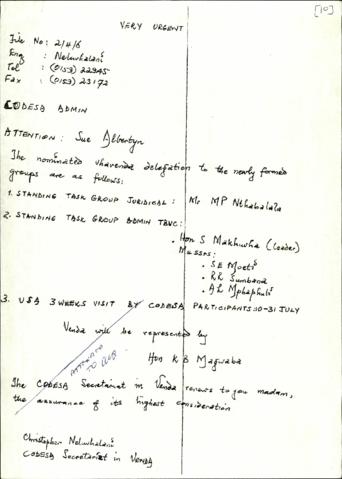 [10]
VERY URGENT
File No: 2/4/6
Enq : Neluvhalani
Tel : (0159) 22945
Fax : (0159) 23172
CODESA ADMIN
ATTENTION: Sue Albertyn
The nominated Vhavenda delegation to the newly formed
groups are as follows:
1. STANDING TASK GROUP JURIDICAL : Mr MP Nthabalala
2. STANDING TASK GROUP ADMIN TBVC:
• Hon S Makhuvha (Leader)
Messrs:
• S E Moeti
• RR Sumbana
• A L Mphaphuli
3. USA 3 WEEKS VISIT BY CODESA PARTICIPANTS 10-31 JULY
Venda will be represented by
Hon K B Magwaba
ATTENDED
TO
The CODESA Secretariat in Venda renews to you madam,
the assurance of its highest consideration
Christopher Neluvhalani
CODESA Secretariat in VENDA